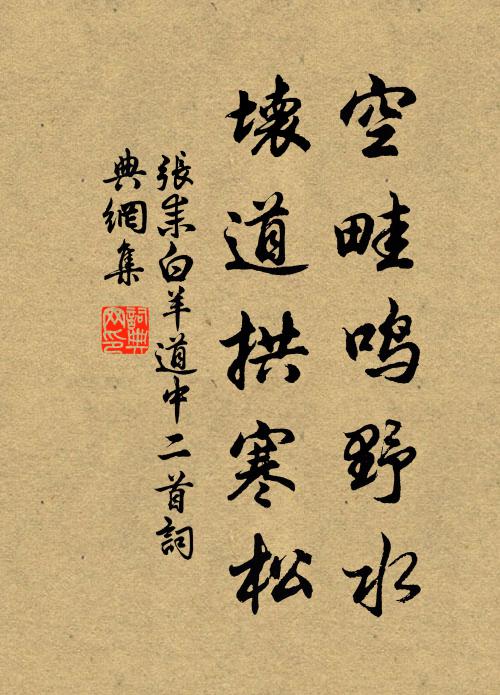 空畦鸣野水
壊道拱寒松
張耒白羊道中二首詞
典網集
詞典
网印